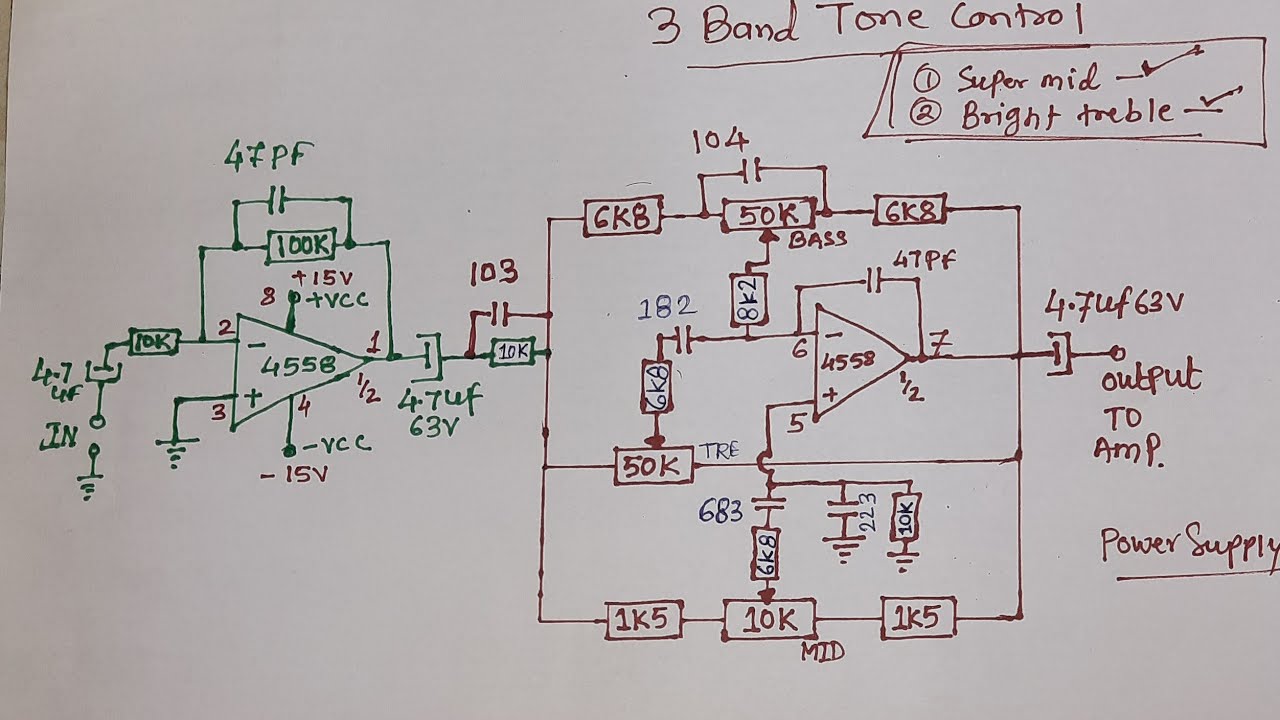 3 Band Tone Control
① Super mid
② Bright treble
47PF
100K
+15V
8
+VCC
10K
2
-
4558
1
1/2
4.7
uF
3
+
4
IN
-VCC
-15V
4.7uf
63V
103
10K
104
6K8
50K
6K8
BASS
8K2
47PF
182
6K8
6
-
4558
7
1/2
+
5
4.7uf 63V
OUTPUT
TO
AMP.
50K
TRE
683
223
10K
6K8
1K5
10K
1K5
MID
Power Supply